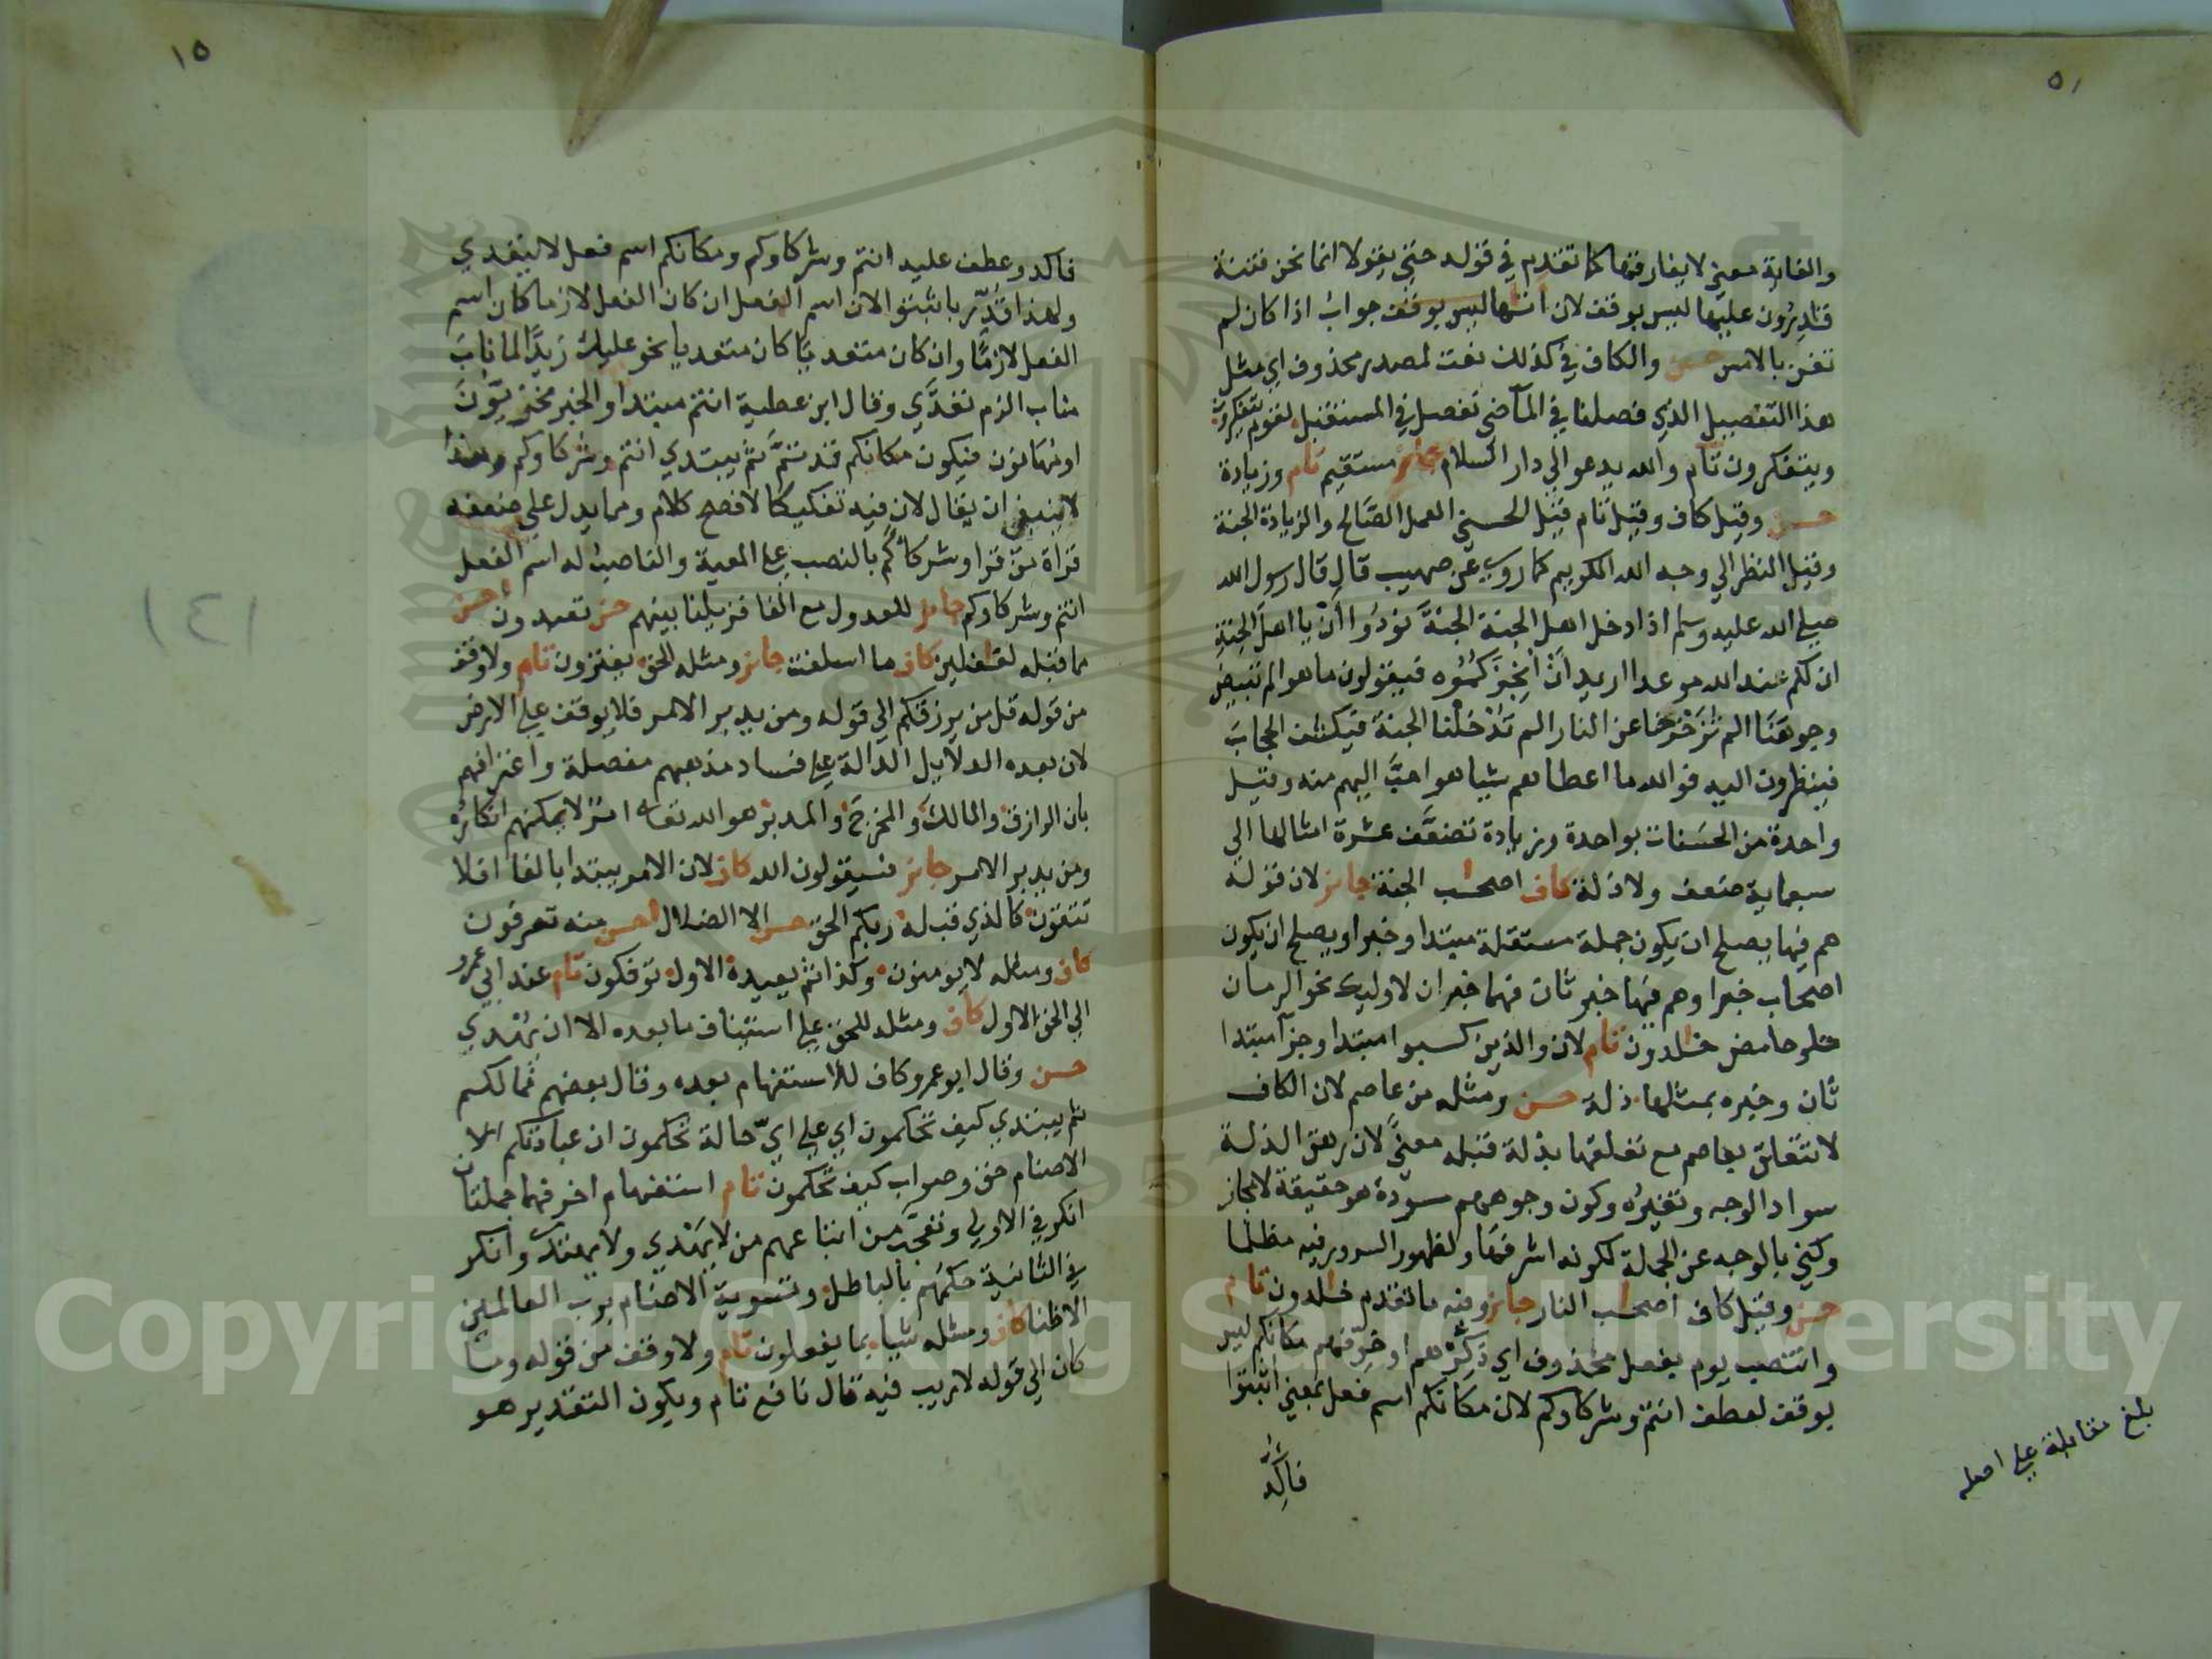 ٥١
والغاية معنى لا يفارقها كما تقدم في قوله حتى يقولا انما نحن فتنة
قادرون عليها ليس بوقف لان اتٰىها ليس بوقف جواب اذا كان لم
تغن بالامس حسن والكاف في كذلك نعت لمصدر محذوف اي مثل
هذا التفصيل الذي فصلنا في الماضي نفصل في المستقبل لقوم يتفكرون
ويتفكرون تام والله يدعو الي دار السلام جائز مستقيم تام وزيادة
حسن وقيل كاف وقيل تام قيل الحسني العمل الصالح والزيادة الجنة
وقيل النظر الي وجه الله الكريم كما روي عن صهيب قال قال رسول الله
صلي الله عليه وسلم اذا دخل اهل الجنة الجنة نودوا ان يا اهل الجنة
ان لكم عند الله موعدا اريد ان انجزكموه فيقولون ما هو الم تبيض
وجوهنا الم تزحزحنا عن النار الم تدخلنا الجنة فيكشف الحجاب
فينظرون اليه فوالله ما اعطاهم شيا هو احب اليهم منه وقيل
واحدة من الحسنات بواحدة وزيادة تضعف عشرة امثالها الي
سبعماية ضعف ولا ذلة كاف اصحٰب الجنة جائز لان قوله
هم فيها يصلح ان يكون جملة مستقلة مبتدا وخبرا ويصلح ان يكون
اصحاب خبرا وهم فيها خبر ثان فهما خبران لاوليك نحو الرمان
حلو حامض خٰلدون تام لان والذين كسبوا مبتدا وجزآ مبتدا
ثان وخبره بمثلها ذلة حسن ومثله من عاصم لان الكاف
لا تتعلق بعاصم مع تعلقها بذلة قبله معنًى لان رهق الذلة
سواد الوجه وتغيره وكون وجوههم مسودة هو حقيقة لا مجاز
وكني بالوجه عن الجملة لكونه اشرفها ولظهور السرور فيه مظلما
حسن وقيل كاف اصحٰب النار جائز وفيه ما تقدم خٰلدون تام
وانتصب يوم بفعل محذوف اي ذكرهم او خوفهم مكانكم ليس
بوقف لعطف انتم وشركاوكم لان مكانكم اسم فعل بمعني اثبتوا
فاكد
بلغ مقابلة علي اصله
١٥
فاكد وعطف عليه انتم وشركاوكم ومكانكم اسم فعل لا يتعدي
ولهذا قدر باثبتوا لان اسم الفعل ان كان الفعل لازما كان اسم
الفعل لازما وان كان متعديا كان متعديا نحو عليك زيدا لما ناب
مناب الزم تعدي وقال ابن عطية انتم مبتدا والخبر مخزيون
او مهانون فيكون مكانكم قد تم ثم يبتدي انتم وشركاوكم وهذا
لا ينبغي ان يقال لان فيه تفكيكا لافصح كلام ومما يدل علي ضعفه
قراة من قرا وشركاءكم بالنصب علي المعية والناصب له اسم الفعل
انتم وشركاوكم جائز للعدول مع الفا فزيلنا بينهم حسن تعبدون احسن
مما قبله لغٰفلين كاف ما اسلفت جائز ومثله الحق يفترون تام ولا وقف
من قوله قل من يرزقكم الي قوله ومن يدبر الامر فلا يوقف علي الارض
لان بعده الدلايل الدالة علي فساد مذهبهم مفصلة واعترافهم
بان الرازق والمالك والمخرج والمدبر هو الله تعالي امر لا يمكنهم انكاره
ومن يدبر الامر جائز فسيقولون الله كاف لان الامر يبتدا بالفا افلا
تتقون كالذي قبله ربكم الحق حسن الا الضلٰل احسن منه تصرفون
كاف ومثله لا يومنون وكذا ثم يعيده الاول توفكون تام عند ابي عمرو
الي الحق الاول كاف ومثله للحق علي استيناف ما بعده الا ان يهدي
حسن وقال ابو عمرو كاف للاستفهام بعده وقال بعضهم فمالكم
ثم يبتدي كيف تحكمون اي علي اي حالة تحكمون ان عبادتكم
الاصنام حق وصواب كيف تحكمون تام استفهام اخر فهما جملتان
انكر في الاولي وتعجب من اتباعهم من لا يهدي ولا يهتدي وانكر
في الثانية حكمهم بالباطل وتسوية الاصنام برب العالمين
الا ظنا كاف ومثله شيا بما يفعلون تام ولا وقف من قوله وما
كان الي قوله لا ريب فيه قال نافع تام ويكون التقدير هو
١٤١
Copyright © King Saud University
1957